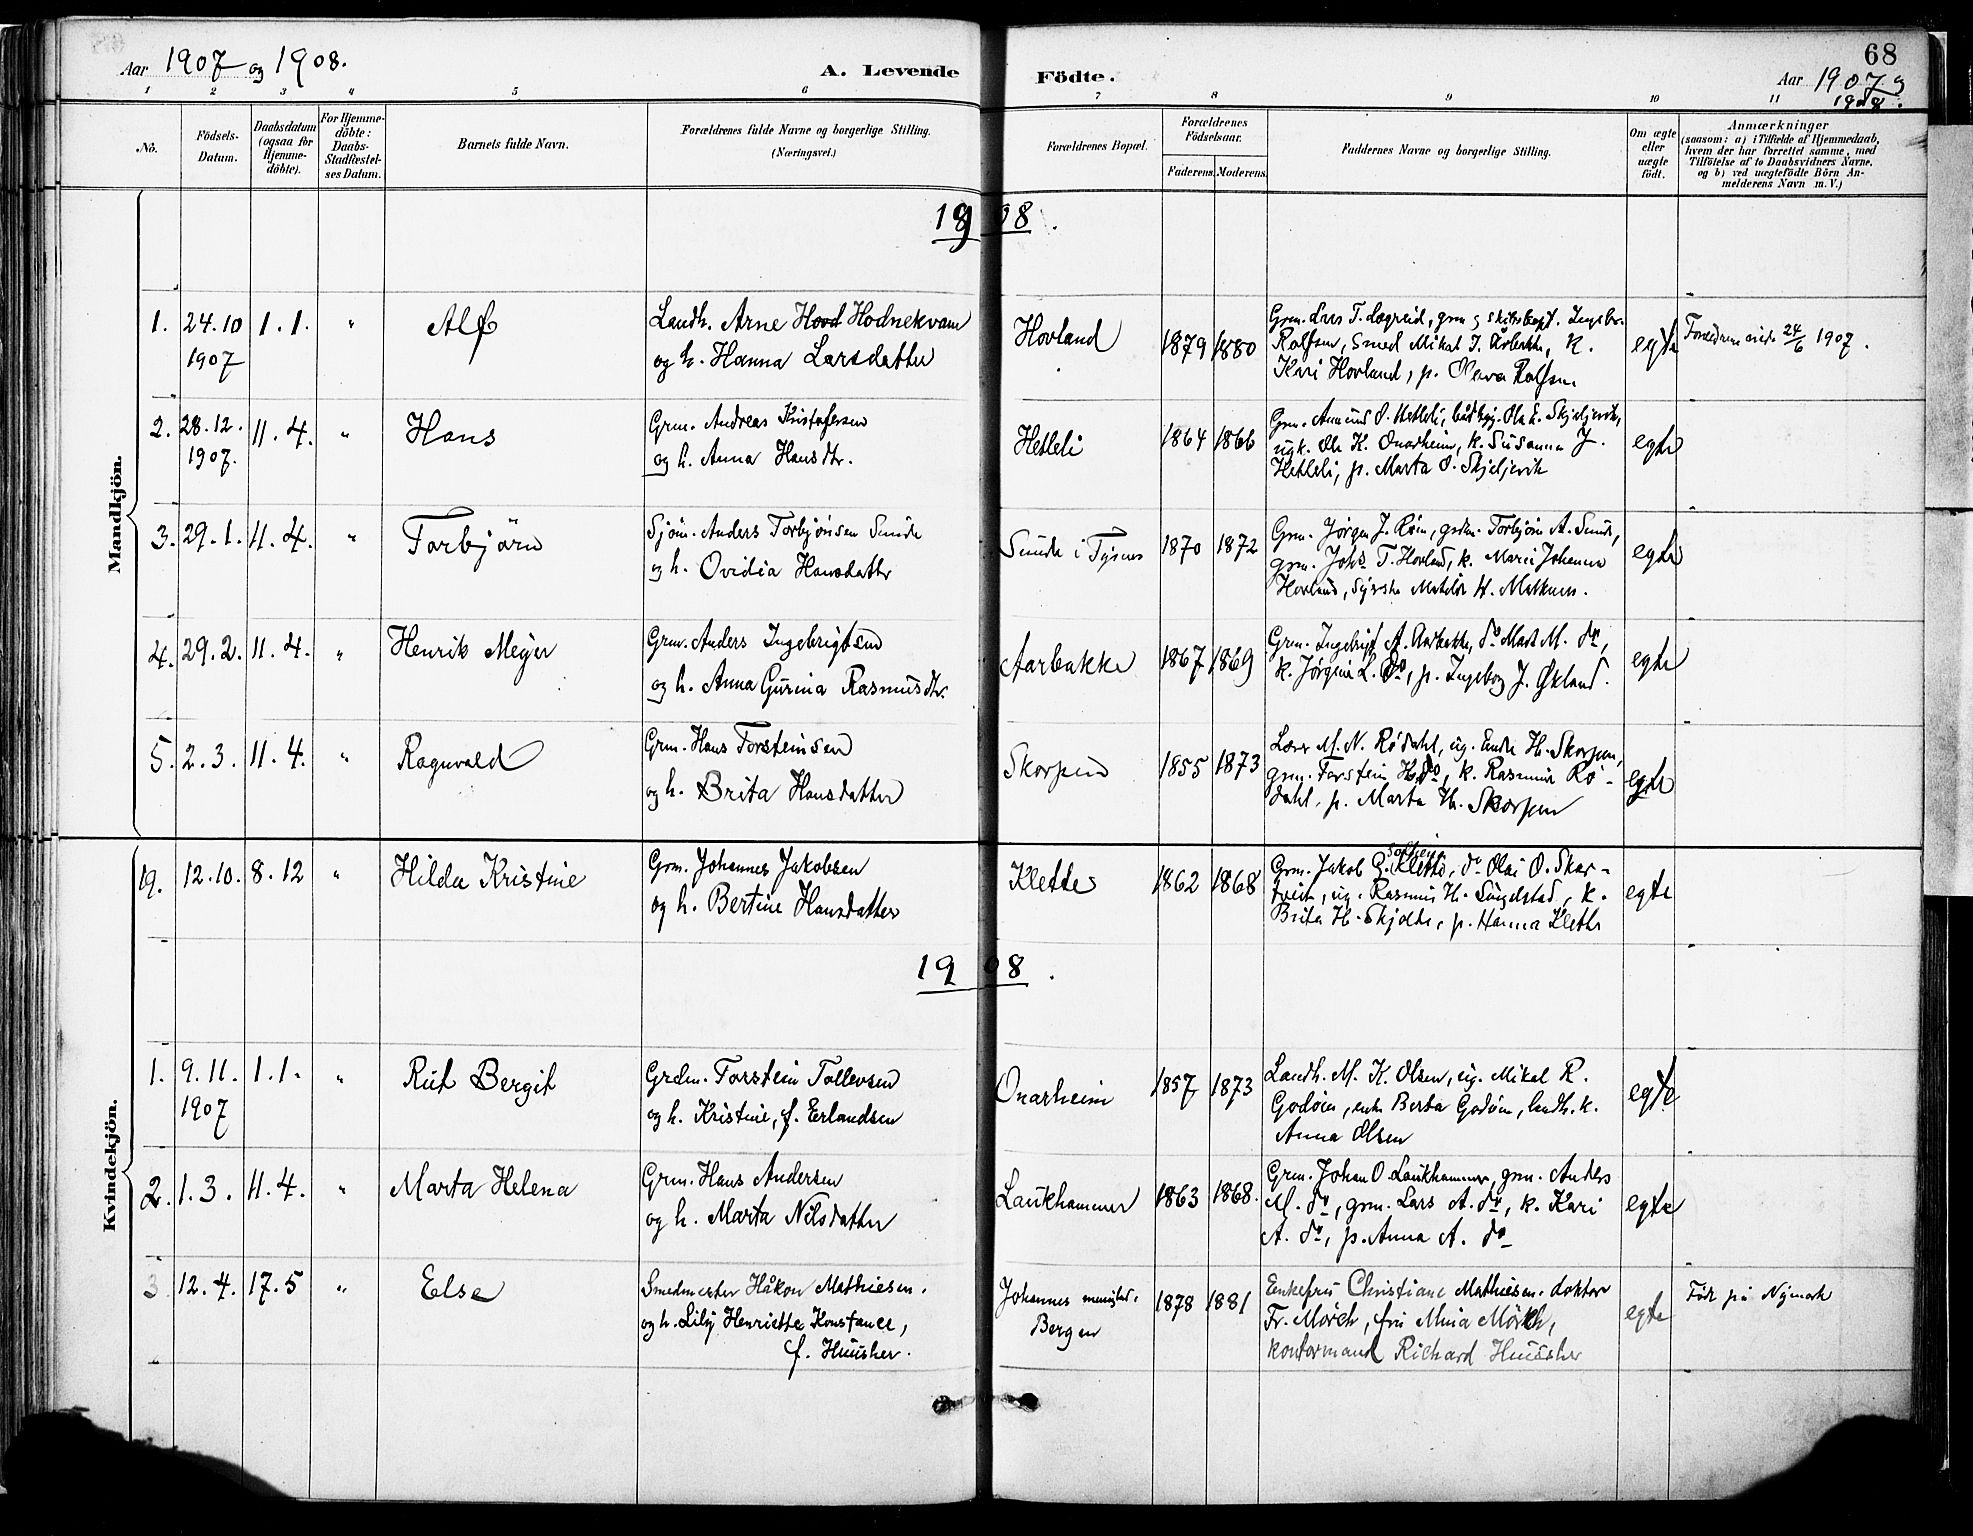 68
Aar 1907 og 1908.
A. Levende Födte.
Aar 1907 og
1908.
1 2 3 4 5 6 7 8 9 10 11
No.
Födsels-
Datum.
Daabsdatum
(ogsaa for
Hjemme-
döbte).
For Hjemme-
döbte:
Daabs-
Stadfæstel-
ses Datum.
Barnets fulde Navn.
Forældrenes fulde Navne og borgerlige Stilling.
(Næringsvei.)
Forældrenes Bopæl.
Forældrenes
Födselsaar.
Faderens. Moderens.
Faddernes Navne og borgerlige Stilling.
Om ægte
eller
uægte
födt.
Anmærkninger
(saasom: a) i Tilfælde af Hjemmedaab,
hvem der har forrettet samme, med
Tilföielse af to Daabsvidners Navne,
og b) ved uægtefödte Börn An-
melderens Navn m. V.)
1908.
Mandkjön.
1. 24.10 1.1. " Alf
1907
Landh. Arne Hodnekvam
og h. Hanna Larsdatter
Hovland 1879 1880
Grm. Lars T. Lægreid, grm og
Rolfsen, Smed Mikal J. k.
Kari Hovland, p. Rolfsen
egte
24/6 1907.
2. 28.12. 11.4. " Hans
1907.
Grm. Andreas Kristofersen
og h. Anna Hansdtr.
Hetleli 1864 1866
Grm. Amund O. Hetleli, Ola E. Skjeljevik,
ugk. Ole K. Onarheim, k. Susanna J.
Hetleli, p. Marta O. Skjeljevik
egte
3. 29.1. 11.4. " Torbjörn
Sjöm. Anders Torbjönsen Sunde
og h. Ovidia Hansdatter
Sunde i Tysnes 1870 1872
Grm. Jørgen J. Røen, Torbjörn A. Sunde,
grm. Johs T. Hovland, k. Marei Johanna
Hovland, Syerske Matilde H.
egte
4. 29.2. 11.4. " Henrik Meyer
Grm. Anders Ingebrigtsen
og h. Anna Gurina Rasmusdtr.
Aarbakke 1867 1869
Grm. Ingebrigt A. Aarbakke, do Mart M. do,
k. Jørgine L. do, p. Ingeborg J. Økland.
egte
5. 2.3. 11.4. " Ragnvald
Grm. Hans Torsteinsen
og h. Brita Hansdatter
Skorpen 1855 1873
Lærer M. N. Rödahl, ug. Endre H. Skorpen,
grm. Torstein H. do, k. Rasmine Rö-
dahl, p. Marta H. Skorpen
egte
Kvindekjön.
19. 12.10. 8.12 " Hilda Kristine
Grm. Johannes Jakobsen
og h. Bertine Hansdatter
Klette 1862 1868
Solheim
Grm. Jakob G. Klette, do Olai O. Skar-
tveit, ug. Rasmus H. Singelstad, k.
Brita H. Skjolde, p. Hanna Klette
egte
1908.
1. 9.11. 1.1. " Rut Bergit
1907
Grdm. Torstein Tollevsen
og h. Kristine, f. Erlandsen
Onarheim 1857 1873
Landh. M. K. Olsen, ug. Mikal R.
Godöen, enke Berta Godöen, landh.k.
Anna Olsen
egte
2. 1.3. 11.4. " Marta Helena
Grm. Hans Andersen
og h. Marta Nilsdatter
Laukhammer 1863 1868.
Grm. Johan O. Laukhammer, grm. Anders
M. do, grm. Lars A. do, k. Kari
A. do, p. Anna A. do
egte
3 12.4. 17.5 " Else
Smedmester Håkon Mathiesen.
og h. Lily Henriette Konstance,
f. Huusher.
Johannes
Bergen
1878 1881
Enkefru Christiane Mathiesen. doktor
Fr. Mörch, fru Mina Mörch,
kontormand Richard Huusher
egte
Född på Nymark